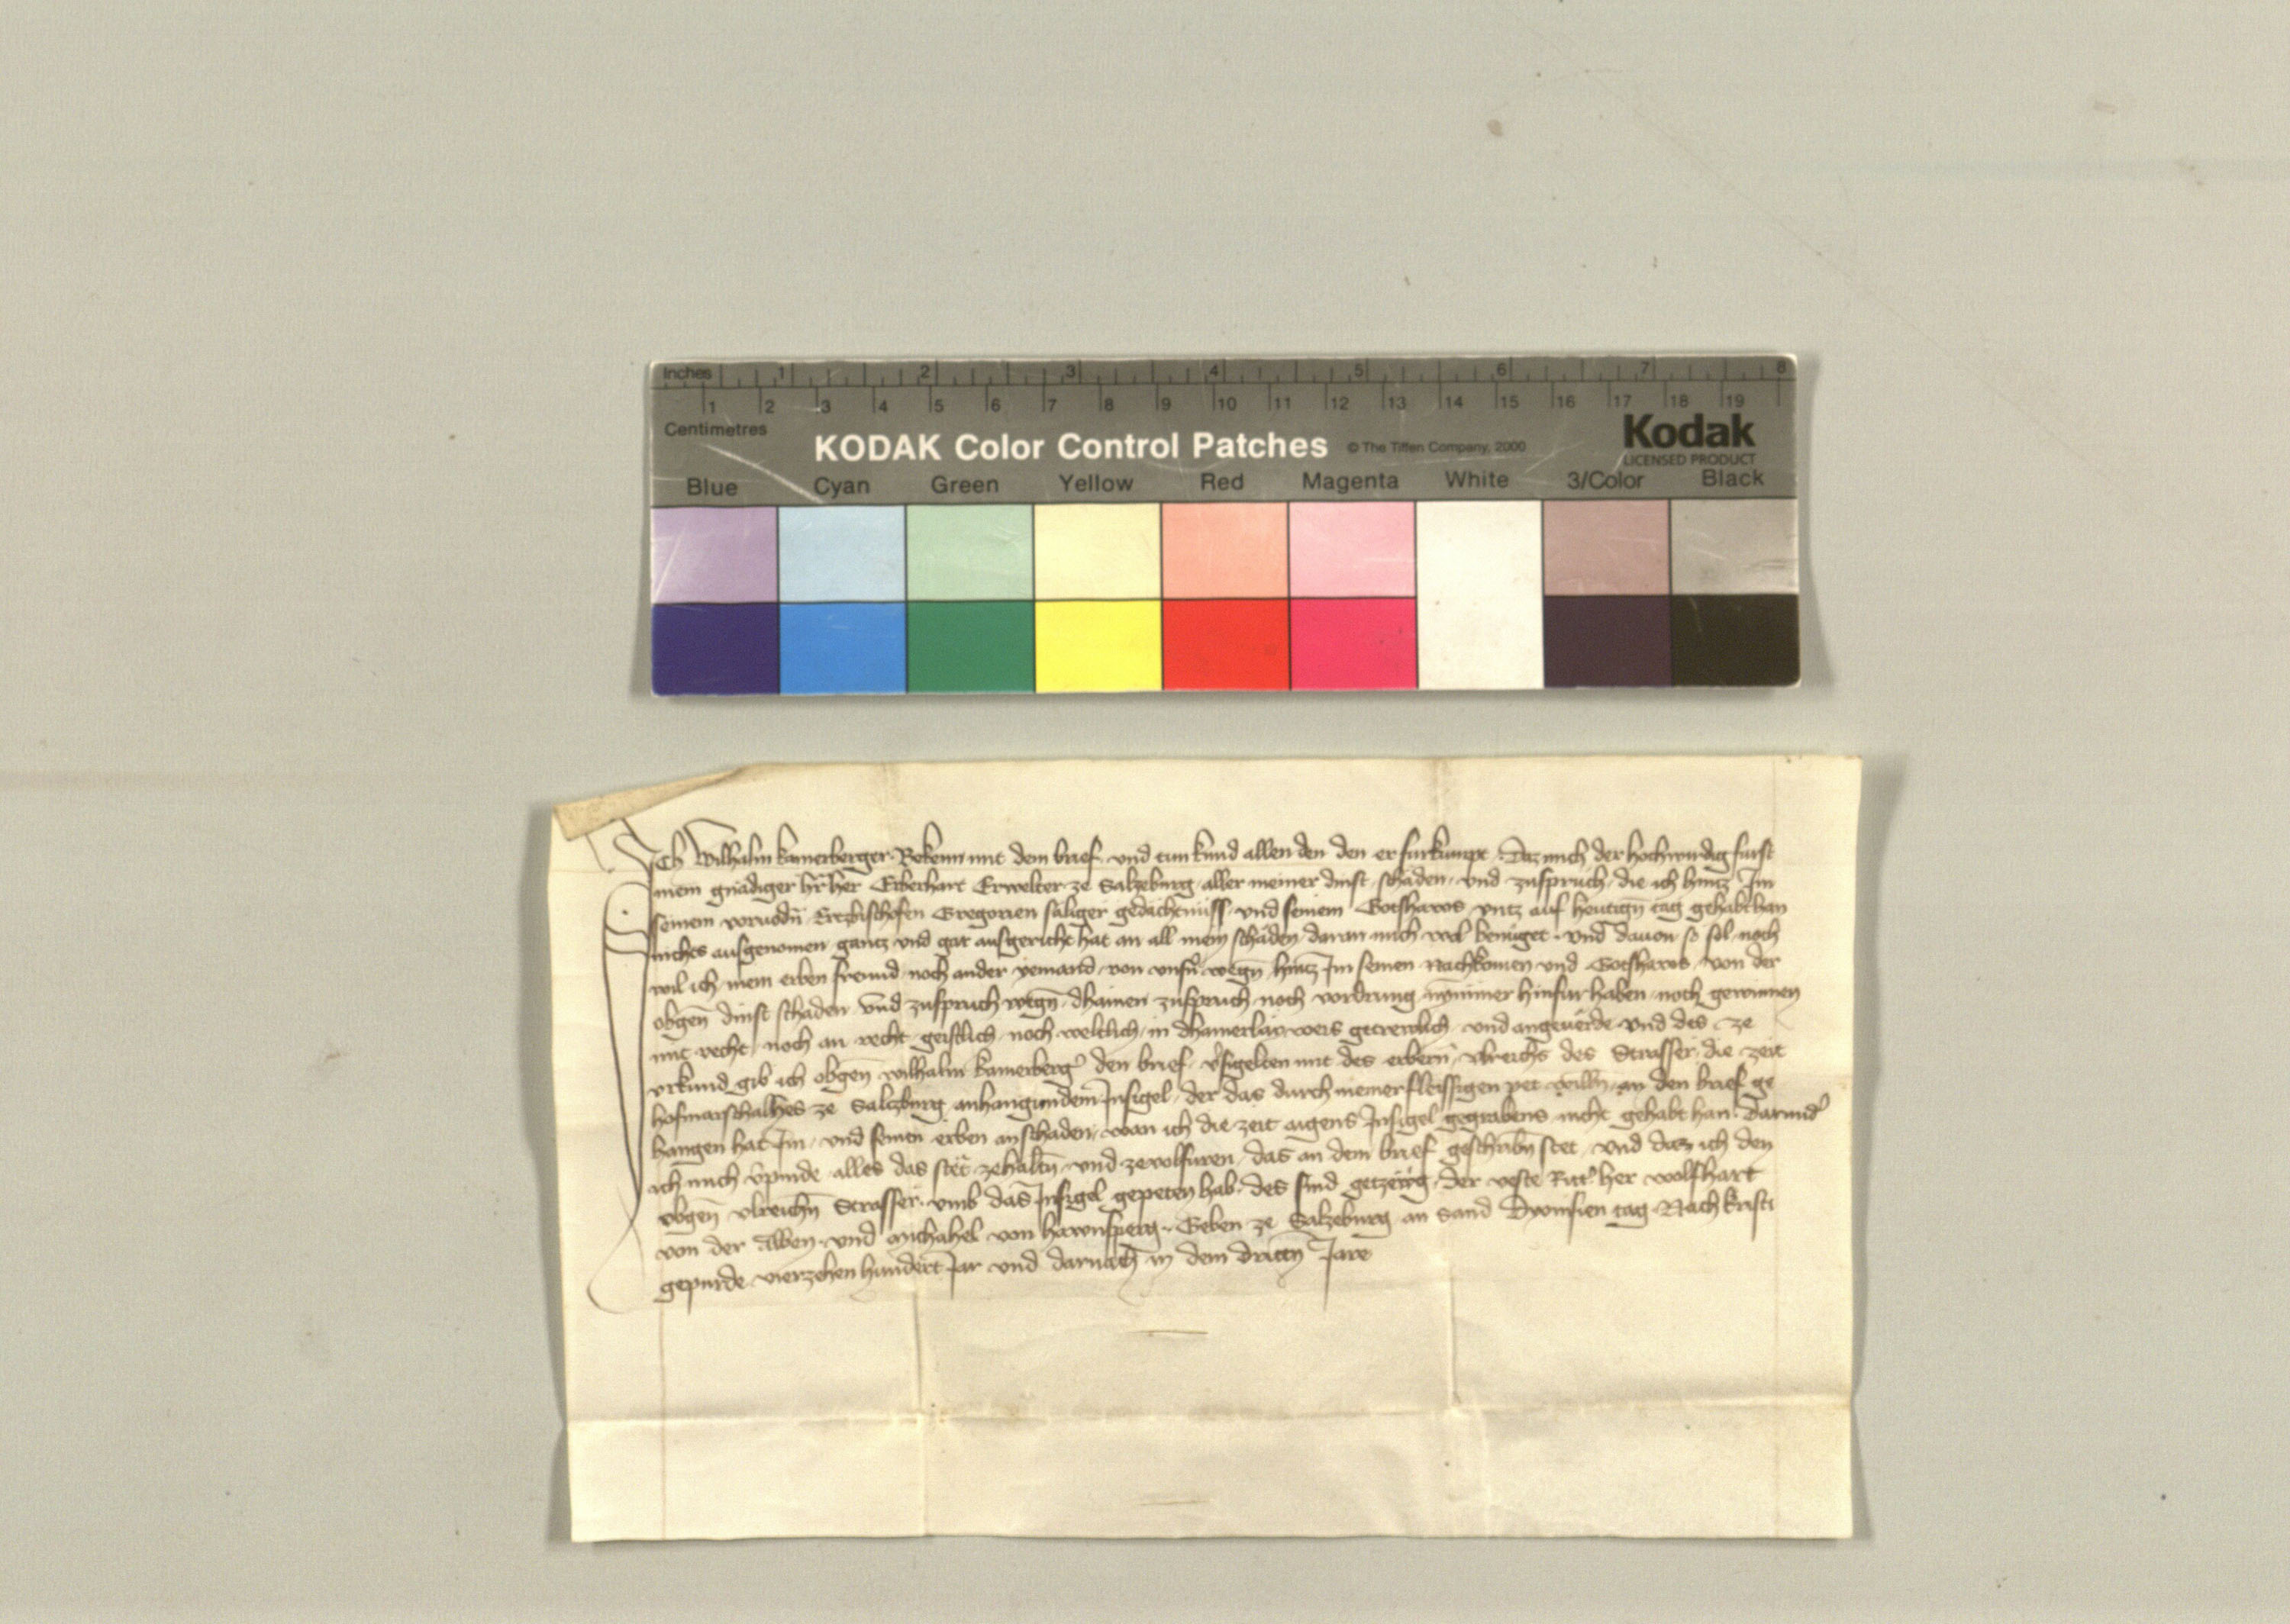 Inches 1 2 3 4 5 6 7 8
1 2 3 4 5 6 7 8 9 10 11 12 13 14 15 16 17 18 19
Centimetres
KODAK Color Control Patches © The Tiffen Company, 2000 Kodak
LICENSED PRODUCT
Blue Cyan Green Yellow Red Magenta White 3/Color Black
Ich Wilhalm kamerberger Bekenn mit dem brief und tun kund allen den den er furkumpt Daz mich der hochwirdig furst
mein gnädiger hr̄ her Eberhart Erwelter ze Salzburg aller meiner dinst schäden und zuspruch die ich hintz Im
seinem voruodn̄ Ertzbischofen Gregorien säliger gedächtnüss und seinem Gotshaws vntz auf heutign̄ tag gehabt han
nichts ausgenomen gantz und gar ausgericht hat an all mein schäden daran mich wol benüget und dauon so sol noch
wil ich mein erben freund noch ander yemand von vnsn̄ wegn̄ hintz Im seinen nachkomen und Gotshaws von der
obgen̄ dinst schäden und zuspruch wegn̄ dhainen zuspruch noch vordrung nymmer hinfur haben noch gewinnen
mit recht noch an recht geistlich noch weltlich in dhainerlay weis getrewlich und angeuerde Und des ze
vrkund gib ich obgen̄ wilhalm kamerberg̉ den brief v̉sigelten mit des erbern̄ Vlreichs des Strasser die zeit
hofmarschalhes ze Salczburg anhangundem Insigel der das durch meiner fleissigen pet willn̄ an den brief ge
hangen hat Im und seinen erben an schaden wan ich die zeit aigens Insigel gegrabens nicht gehabt han darund̉
ich mich v̉pinde alles das stet zehaltn̄ und zevolfuren das an dem brief geschribn̄ stet und daz ich den
obgen̄ vlreichn̄ Strasser umb das Insigel gepeten hab des sind getzewg der veste Ritt̉ her wolfhart
von der Alben und michahel von hawnsperg Geben ze Salzeburg an sand Dyonisien tag Nach kristi
gepurde vierzehen hundert Jar und darnach in dem drittn̄ Jare